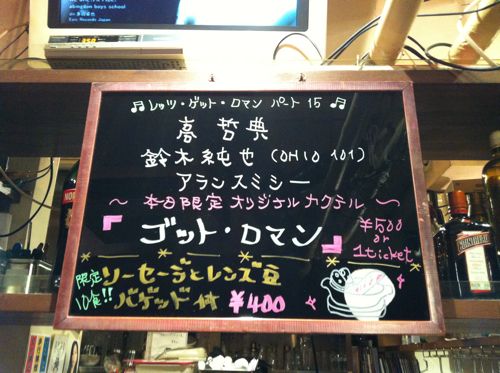 we are,
abingdon boys school
Epic Records Japan
♫ レッツ・ゲット・ロマン パート 15 ♫
高 哲典
鈴木純也 (OHIO 101)
アランスミシー
〜 本日限定 オリジナル カクテル 〜
『ゴット・ロマン』
¥500
or
1ticket
限定
10食!!
ソーセージとレンズ豆
バゲッド付 ¥400